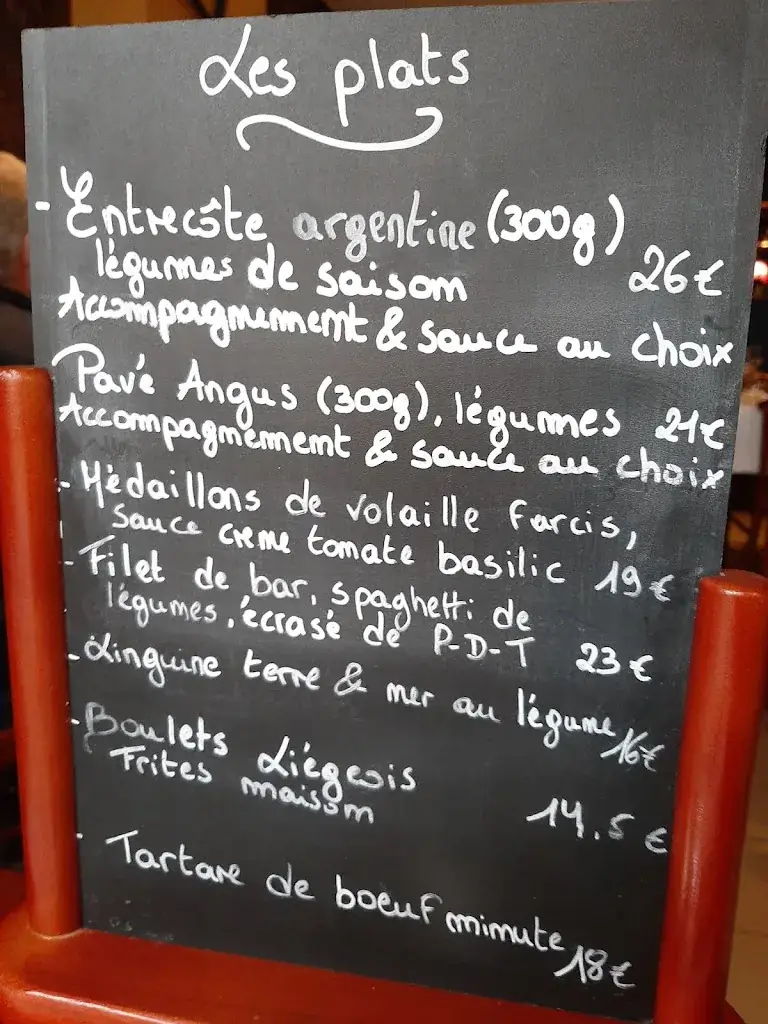 Les plats
- Entrecôte argentine (300g)
légumes de saison 26€
Accompagnement & sauce au choix
Pavé Angus (300g), légumes 21€
Accompagnement & sauce au choix
- Médaillons de volaille farcis,
sauce creme tomate basilic 19€
- Filet de bar, spaghetti de
légumes, écrasé de P-D-T 23€
- Linguine terre & mer au légume 16€
- Boulets Liégeois
Frites maison 14.5€
- Tartare de boeuf minute 18€